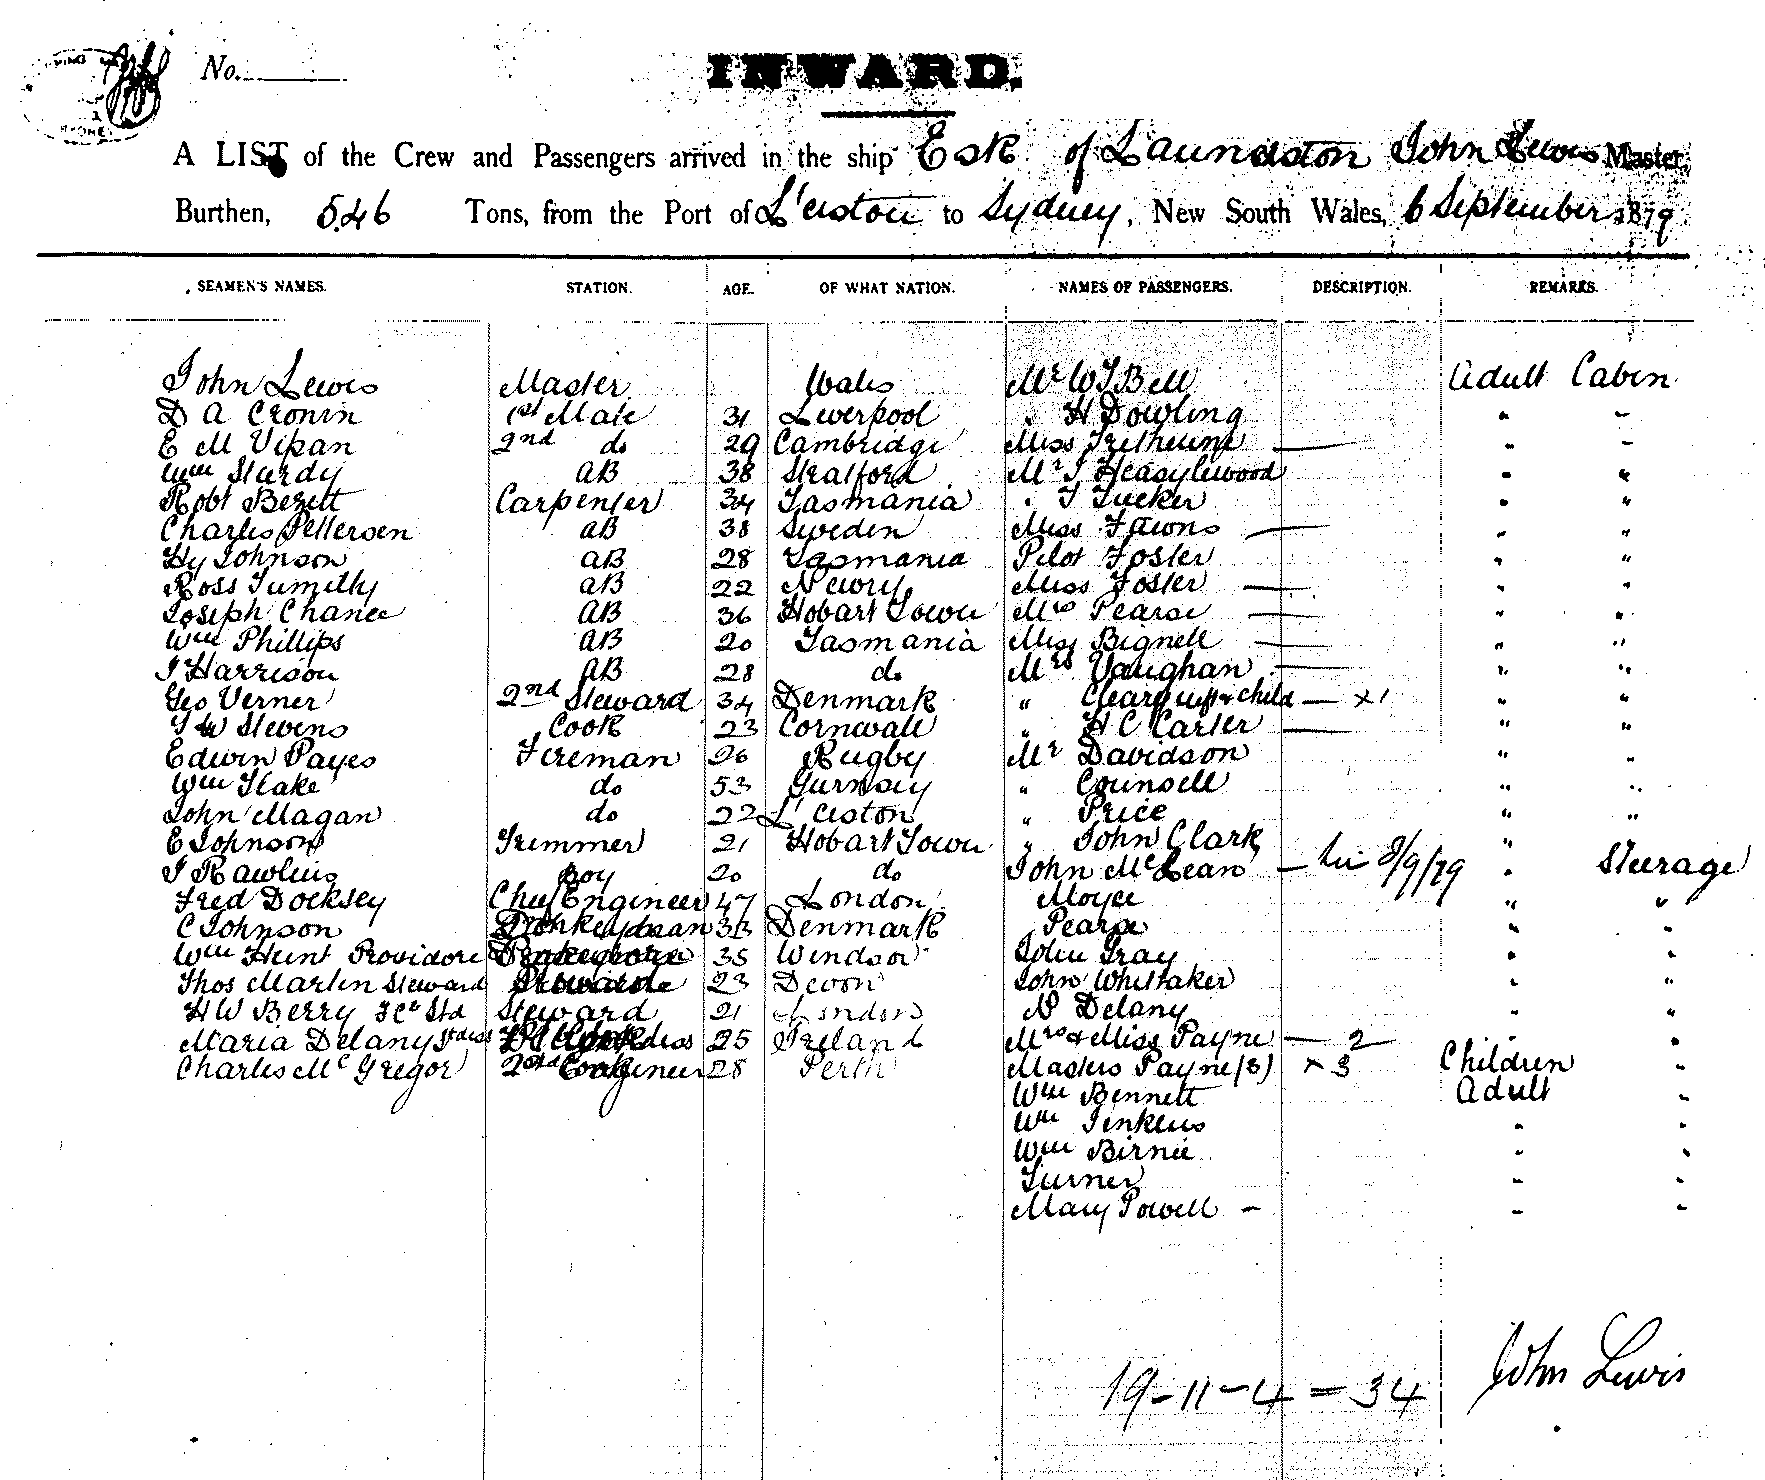 No.
INWARD.
A LIST of the Crew and Passengers arrived in the ship Esk of Launceston John Lewis Master,
Burthen, 546 Tons, from the Port of L'ceston to Sydney, New South Wales, 6 September 1879
SEAMEN'S NAMES. STATION. AGE. OF WHAT NATION. NAMES OF PASSENGERS. DESCRIPTION. REMARKS.
John Lewis Master Wales Mr W J Bell Adult Cabin
D A Cronin 1st Mate 31 Liverpool " H Dowling " "
E M Vipan 2nd do 29 Cambridge Miss — " "
Wm Sturdy AB 38 Stratford Mr " "
Robt Bezett Carpenter 34 Tasmania " J Tucker " "
Charles Pettersen AB 38 Sweden Miss Fawns — " "
Hy Johnson AB 28 Tasmania Pilot Foster " "
Ross AB 22 Newry Miss Foster — " "
Joseph Chance AB 36 Hobart Town Mrs Pearse — " "
Wm Phillips AB 20 Tasmania Miss Bignell — " "
J Harrison AB 28 do Mrs Vaughan — " "
Geo Verner 2nd Steward 34 Denmark " & child — x 1 " "
J W Stevens Cook 23 Cornwall " H C Carter — " "
Edwin Payes Fireman 26 Rugby Mr Davidson " "
Wm Flake do 53 Gurnsey " Counsell " "
John Magan do 22 L'ceston " Price " "
E Johnson Trimmer 21 Hobart Town " John Clark "
J Rawlins Boy 20 do John McLean — 8/9/79 " Steerage
Fred Docksey Chief Engineer 47 London Moyce " "
C Johnson Donkeyman 33 Denmark Pearse " "
Wm Hunt Providore 35 Windsor John Gray " "
Thos Martin Steward 23 Devon John Whittaker " "
H W Berry Steward 21 London Delany " "
Maria Delany 25 Ireland Mrs & Miss Payne — 2 "
Charles McGregor 28 Perth Masters Payne (3) x 3 Children "
Wm Bennett Adult "
Wm Jenkins " "
Wm Birnie " "
Turner " "
Mary Powell — " "
19 - 11 - 4 = 34
John Lewis